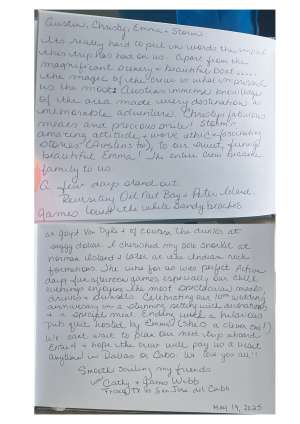 Austin, Christy, Emma + Storm
It's really hard to put in words the impact
this trip has had on us. Apart from the
magnificent scenery + beautiful boat ....
the magic of the crew is what impressed
us the most! Austin's immense knowledge
of the area made every destination a
memorable adventure. Christy's fabulous
meals and precious smile! Storm's
amazing attitude + work ethic + fascinating
stories (Austin's too), to our sweet, funny
beautiful Emma. The entire crew became
family to us.
A few days stand out.
Revisiting Bay + Peter Island.
James loved the white sandy beaches
at Jost Van Dyke + of course the drinks at
soggy dollar. I cherished my solo snorkel at
norman island + later at the Indian rock
formations. The was for us perfect. Active
days, fun afternoon games, especially our
evenings enjoying the most spectacular meals,
drinks + sunsets. Celebrating our 10th wedding
anniversary on a stunning setting with decorations
+ a special meal. Ending with a hilarious
pub quiz hosted by Emma (she's a clever one!)
We can't wait to plan our next trip aboard
+ hope the crew will pay us a visit
anytime in Dallas or Cabo. We love you all!!
Smooth sailing my friends
Cathy + James Webb
Frisco, TX San Jose del Cabo
MAY 19, 2025